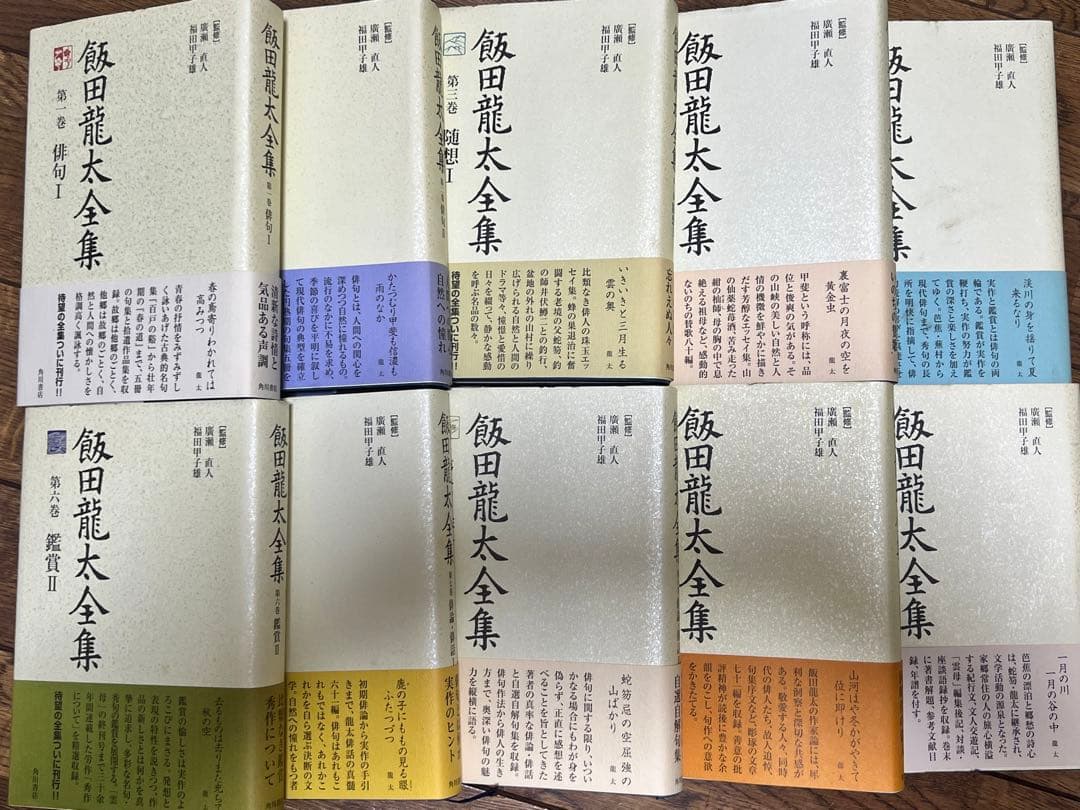 飯田龍太全集
第一巻 俳句Ⅰ
[監修]
廣瀬 直人
福田甲子雄
春の鳶寄りわかれては
高みつつ 龍太
青春の抒情をみずみずし
く詠いあげた古典的名句
集『百戸の谿』から壮年
期の『春の道』まで、五冊
の句集と拾遺作品集を収
録。故郷は故郷のごとく、
他郷は他郷のごとく、自
然と人間への懐かしさを
格調高く諷詠する。
待望の全集ついに刊行!!
角川書店
飯田龍太全集 第一巻 俳句Ⅰ
清新な詩情と
気品ある声調
[監修]
廣瀬 直人
福田甲子雄
かたつむり甲斐も信濃も
雨のなか 龍太
俳句とは、人間への関心を
深めつつ自然に憧れるもの。
流行のなかに不易を求め、
季節の喜びを平明に叙し
て現代俳句の典型を確立
角川書店
自然への憧れ
飯田龍太全集
第三巻 随想Ⅰ
[監修]
廣瀬 直人
福田甲子雄
いきいきと三月生る
雲の奥 龍太
比類なき俳人の珠玉エッ
セイ集。蜂の巣退治に奮
闘する老境の父蛇笏、釣
の師井伏鱒二との釣行、
盆地の外れの山村に繰り
広げられる自然と人間の
ドラマ等々、憧憬と愛惜の
日々を綴って、静かな感動
を呼ぶ名品の数々。
待望の全集ついに刊行!!
忘れえぬ人々
飯田龍太全集
[監修]
廣瀬 直人
福田甲子雄
裏富士の月夜の空を
黄金虫 龍太
甲斐という呼称には、品
位と俊爽の気がある。そ
の山峡の美しい自然と人
情の機微を鮮やかに描き
だす芳醇なエッセイ集。山
の仙薬蛇苺酒、苦み走った
紺の杣師、母の胸の中で息
絶える祖母など、感動的
ないのちの賛歌八十編。
飯田龍太全集
[監修]
廣瀬 直人
福田甲子雄
渓川の身を揺りて夏
来るなり 龍太
実作と鑑賞とは俳句の両
輪である。鑑賞が実作を
鞭打ち、実作の努力が鑑
賞の深さと楽しさを加え
てゆく。芭蕉、蕪村から
現代俳句まで、秀句の長
所を明快に指摘して、俳
飯田龍太全集
第六巻 鑑賞Ⅱ
[監修]
廣瀬 直人
福田甲子雄
去るものは去りまた充ちて
秋の空 龍太
鑑賞の愉しさは実作のよ
ろこびにまさる。発想と
表現の特性を説きつつ、作
品の新しさとは何かを真
摯に追求し、多彩な名句・
秀句の鑑賞を展開する。『雲
母』の終刊号まで、三十余
年間連載した労作「秀作
について」を精選収録。
待望の全集ついに刊行!!
角川書店
飯田龍太全集 第六巻 鑑賞Ⅱ
秀作について
[監修]
廣瀬 直人
福田甲子雄
鹿の子にももの見る眼
ふたつづつ 龍太
初期俳論から実作の手引
きまで、龍太俳話の真髄
六十一編。俳句はあれもこ
れもではなく、あれかこ
れかを自ら選ぶ決断の文
学。自然への憧れをもつ者
角川書店
飯田龍太全集
実作のヒント
飯田龍太全集
[監修]
廣瀬 直人
福田甲子雄
蛇笏忌の空屈強の
山ばかり 龍太
俳句に関する限り、いつい
かなる場合にもわが身を
偽らず、正直に感想を述
べることを旨としてきた
著者の真率な俳論・俳話
と自選自解句集を収録。
俳句作法から俳人の生き
方まで、奥深い俳句の魅
力を縦横に語る。
自選自解句集
飯田龍太全集
[監修]
廣瀬 直人
福田甲子雄
山河はや冬かがやきて
位に即けり 龍太
飯田龍太の作家論には、犀
利な洞察と深切な共感が
ある。敬愛する人々、同時
代の俳人たち、故人追悼、
句集序文など、彫琢の文章
七十一編を収録。善意の批
評精神が読後に豊かな余
韻をのこし、句作への意欲
をかきたてる。
飯田龍太全集
[監修]
廣瀬 直人
福田甲子雄
一月の川
一月の谷の中 龍太
芭蕉の漂泊と郷愁の詩心
は、蛇笏・龍太に継承され、
文学活動の源泉となった。
家郷常住の人の旅心横溢
する紀行文、文人交遊記、
「雲母」編集後記、対談・
座談談語録抄を収録。巻末
に著書解題、参考文献目
録、年譜を付す。